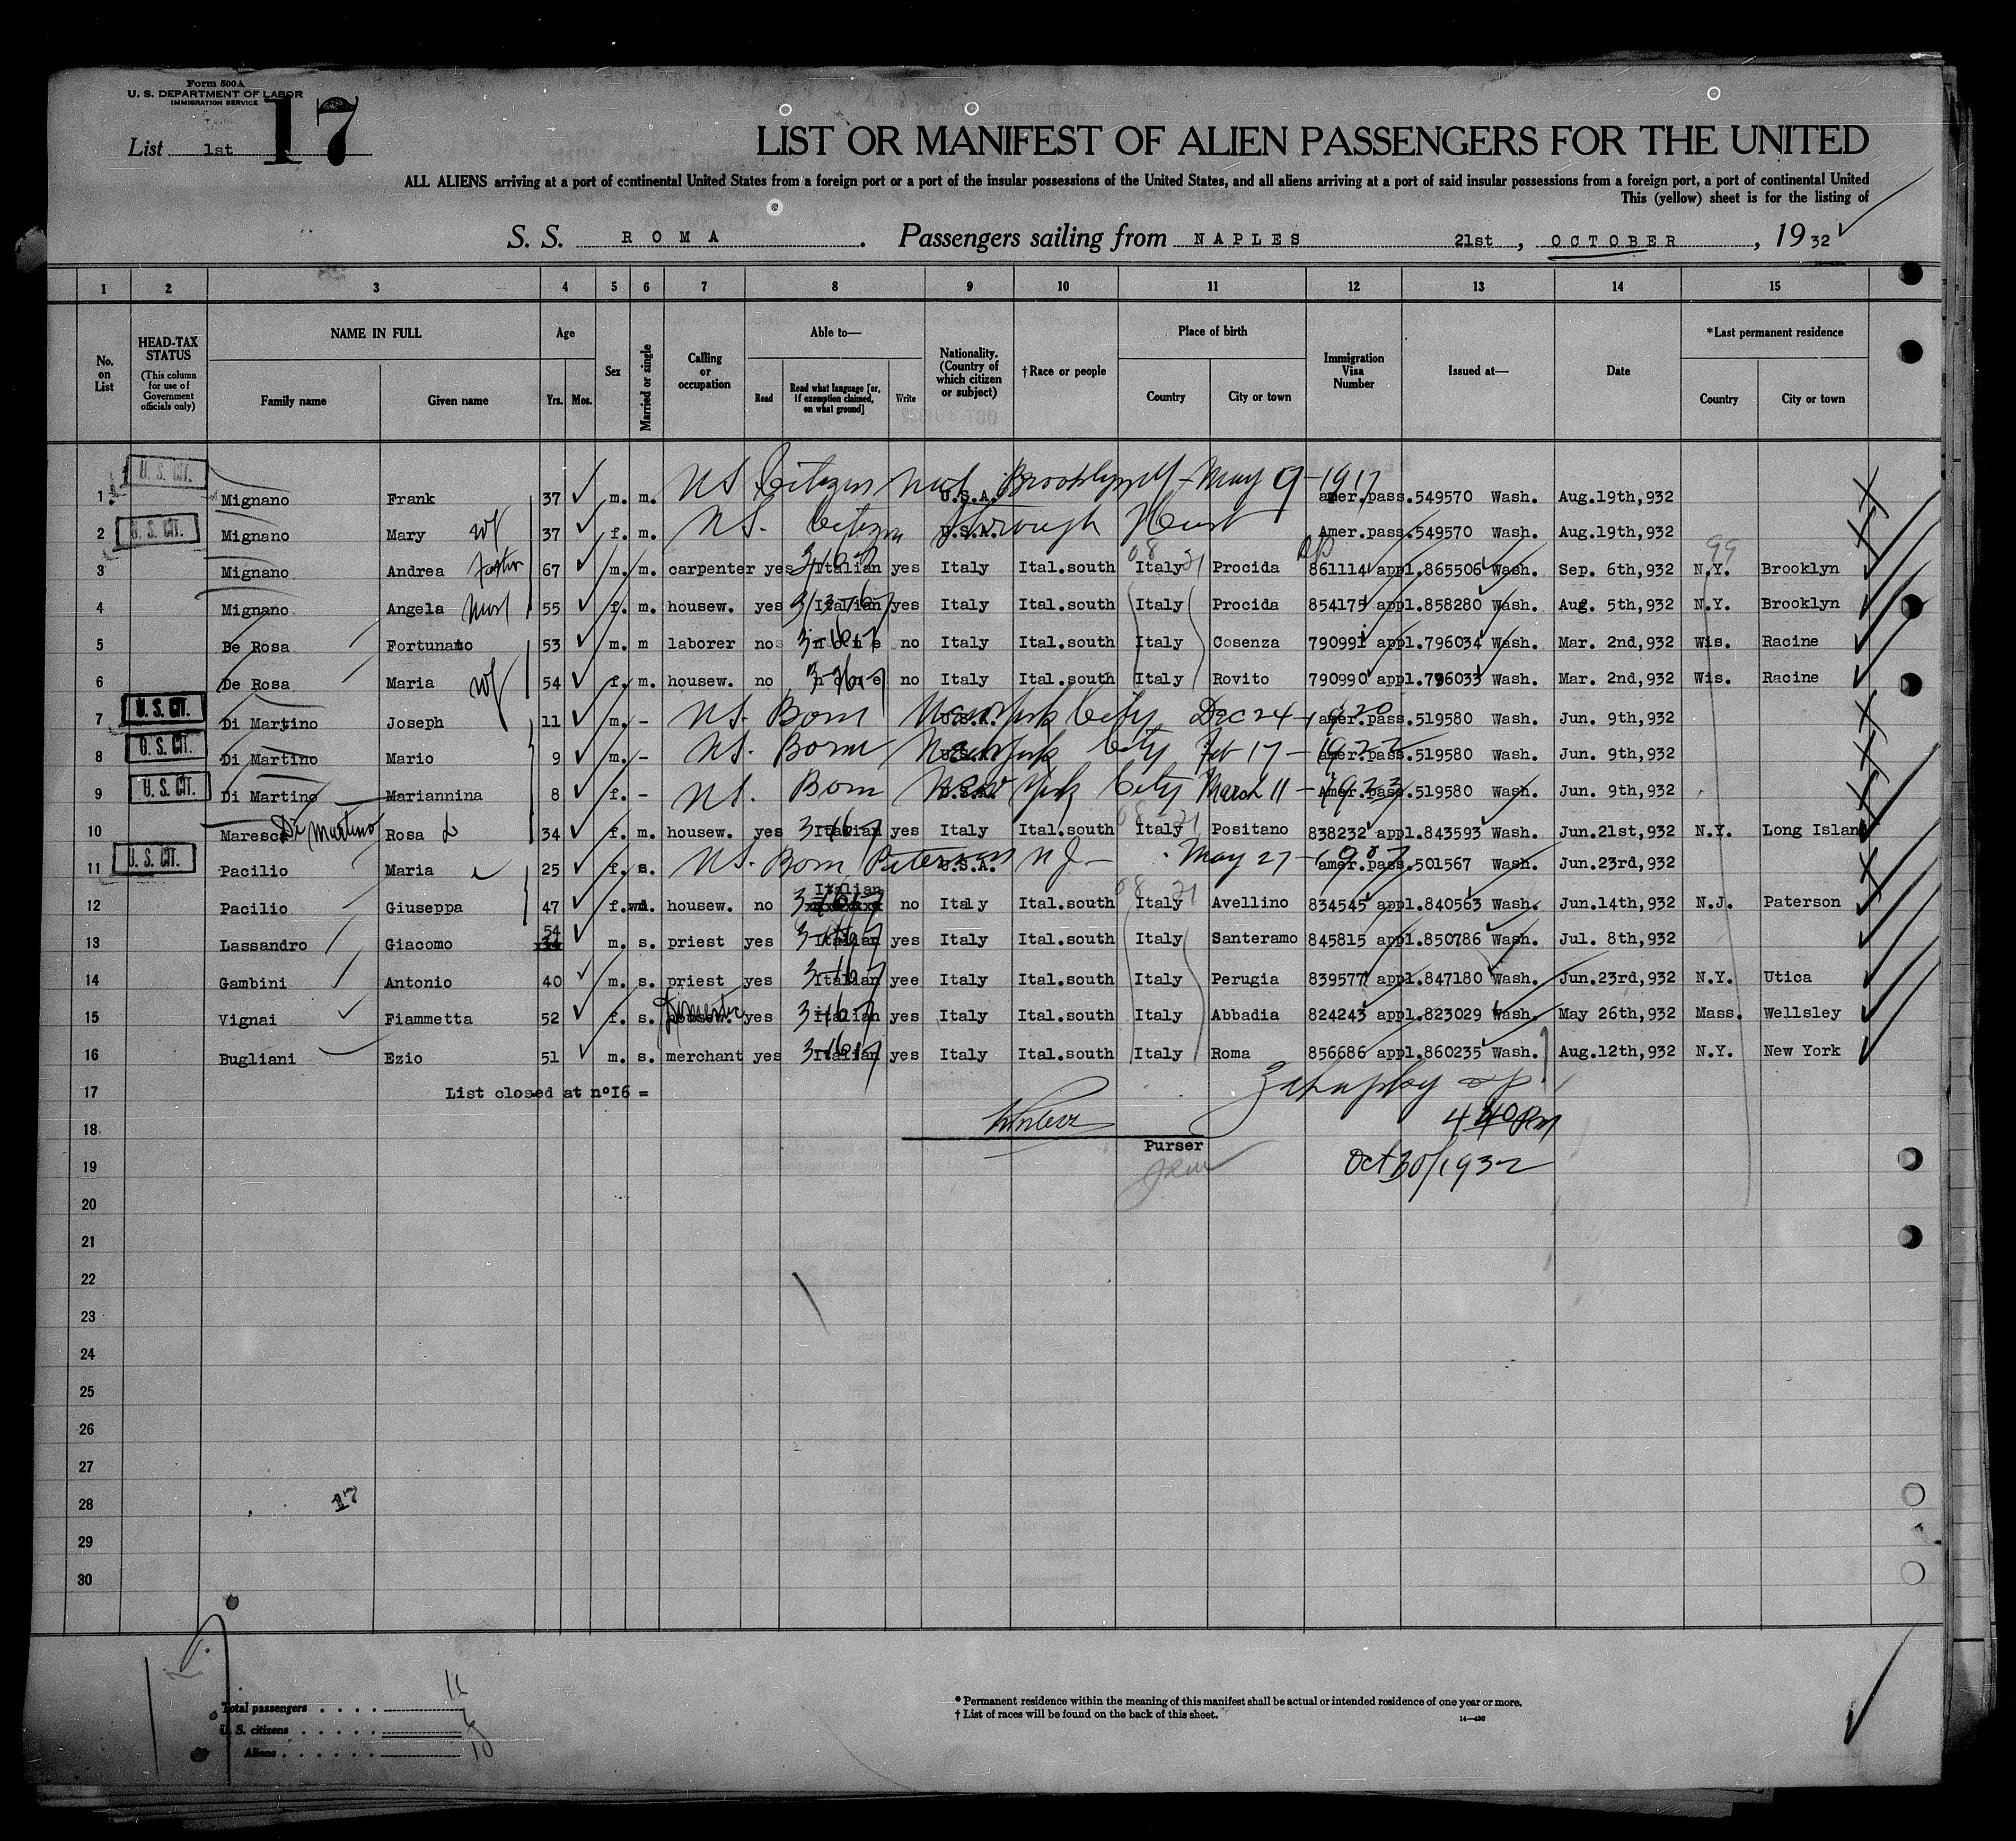 Form 500A
U. S. DEPARTMENT OF LABOR
IMMIGRATION SERVICE
List 1st 17
LIST OR MANIFEST OF ALIEN PASSENGERS FOR THE UNITED
ALL ALIENS arriving at a port of continental United States from a foreign port or a port of the insular possessions of the United States, and all aliens arriving at a port of said insular possessions from a foreign port, a port of continental United
This (yellow) sheet is for the listing of
S. S. ROMA. Passengers sailing from NAPLES 21st, OCTOBER, 1932
1 2 3 4 5 6 7 8 9 10 11 12 13 14 15
No. on List
HEAD-TAX STATUS (This column for use of Government officials only)
NAME IN FULL
Family name Given name
Age Yrs. Mos.
Sex
Married or single
Calling or occupation
Able to—
Read Read what language [or, if exemption claimed, on what ground] Write
Nationality. (Country of which citizen or subject)
†Race or people
Place of birth
Country City or town
Immigration Visa Number
Issued at—
Date
*Last permanent residence
Country City or town
1 U. S. CIT. Mignano Frank 37 m. m. US Citizen U.S.A. Brooklyn May 9-1917 amer.pass.549570 Wash. Aug.19th,932
2 U. S. CIT. Mignano Mary wf 37 f. m. US. Citizen U.S.A. through Amer.pass.549570 Wash. Aug.19th,932
3 Mignano Andrea 67 m. m. carpenter yes Italian yes Italy Ital.south Italy Procida 861114 appl.865506 Wash. Sep. 6th,932 N.Y. Brooklyn
4 Mignano Angela 55 f. m. housew. yes Italian yes Italy Ital.south Italy Procida 854175 appl.858280 Wash. Aug. 5th,932 N.Y. Brooklyn
5 De Rosa Fortunato 53 m. m laborer no none no Italy Ital.south Italy Cosenza 790991 appl.796034 Wash. Mar. 2nd,932 Wis. Racine
6 De Rosa Maria wf 54 f. m. housew. no none no Italy Ital.south Italy Rovito 790990 appl.796033 Wash. Mar. 2nd,932 Wis. Racine
7 U. S. CIT. Di Martino Joseph 11 m. - US. Born New York City U.S.A. Dec 24-1920 amer.pass.519580 Wash. Jun. 9th,932
8 U. S. CIT. Di Martino Mario 9 m. - US. Born New York City U.S.A. Feb 17-1922 amer.pass.519580 Wash. Jun. 9th,932
9 U. S. CIT. Di Martino Mariannina 8 f. - US. Born New York City U.S.A. March 11-1923 Amer.pass.519580 Wash. Jun. 9th,932
10 Maresca Di Martino Rosa 34 f. m. housew. yes Italian yes Italy Ital.south Italy Positano 838232 appl.843593 Wash. Jun.21st,932 N.Y. Long Island
11 U. S. CIT. Pacilio Maria 25 f. s. US. Born Paterson NJ- U.S.A. May 27-1907 amer.pass.501567 Wash. Jun.23rd,932
12 Pacilio Giuseppa 47 f. wd. housew. no Italian no Italy Ital.south Italy Avellino 834545 appl.840563 Wash. Jun.14th,932 N.J. Paterson
13 Lassandro Giacomo 54 m. s. priest yes Italian yes Italy Ital.south Italy Santeramo 845815 appl.850786 Wash. Jul. 8th,932
14 Gambini Antonio 40 m. s. priest yes Italian yee Italy Ital.south Italy Perugia 839577 appl.847180 Wash. Jun.23rd,932 N.Y. Utica
15 Vignai Fiammetta 52 f. s. housew. Domestic yes Italian yes Italy Ital.south Italy Abbadia 824243 appl.823029 Wash. May 26th,932 Mass. Wellsley
16 Bugliani Ezio 51 m. s. merchant yes Italian yes Italy Ital.south Italy Roma 856686 appl.860235 Wash. Aug.12th,932 N.Y. New York
17 List closed at n°I6 =
18 440 PM
Purser
19 Oct 30/1932
20
21
22
23
24
25
26
27
28 17
29
30
Total passengers . . . . 16
U. S. citizens . . . . . 6
Aliens . . . . . . 10
* Permanent residence within the meaning of this manifest shall be actual or intended residence of one year or more.
† List of races will be found on the back of this sheet.
14—430